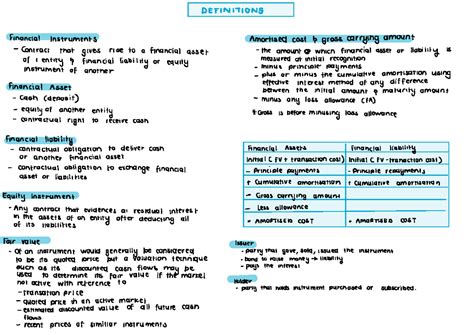 DEFINITIONS
Financial Instruments
- Contract that gives rise to a financial asset
of 1 entity & financial liability or equity
instrument of another
Financial Asset
- Cash (deposit)
- equity of another entity
- contractual right to receive cash
Financial liability
- contractual obligation to deliver cash
or another financial asset
- contractual obligation to exchange financial
asset or liabilities
Equity Instrument
- Any contract that evidences a residual interest
in the assets of an entity after deducting all
of its liabilities
Fair value
- Of an instrument would generally be considered
to be its quoted price but a valuation technique
such as its discounted cash flows may be
used to determine its fair value if the market
not active with reference to
- transation price
- quoted price in an active market
- estimated discounted value of all future cash
flows
- recent prices of similiar instruments
Amortised cost & gross carrying amount
- the amount @ which financial asset or liability is
measured at initial recognition
- minus principle payments
- plus or minus the cumulative amortisation using
effective interest method of any difference
between the initial amount & maturity amount
- minus any loss allowance (FA)
* Gross is before minusing loss allowance
Financial Assets
Financial liability
Initial (FV + transaction cost)
Initial (FV - transaction cost)
- Principle payments
- Principle repayments
± Cumulative amortisation
± Cumulative amortisation
= Gross carrying amount
- Less allowance
= AMORTISED COST
= AMORTISED COST
Issuer
- party that gave, sold, issued the instrument
- bond to raise money → liability
- pays the interest
Holder
- party that holds instrument purchased or subscribed.